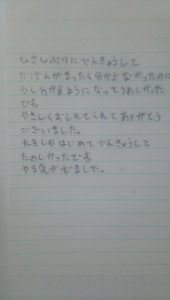 ひさびさにべんきょうして
かいさんがまったく分からなかったのに
かしわかるようになってうれしかった
です。
やさしくおしえてくれてありがとう
ございました。
たをしもはじめてべんきょうして
たのしかったです
やる気がでました。